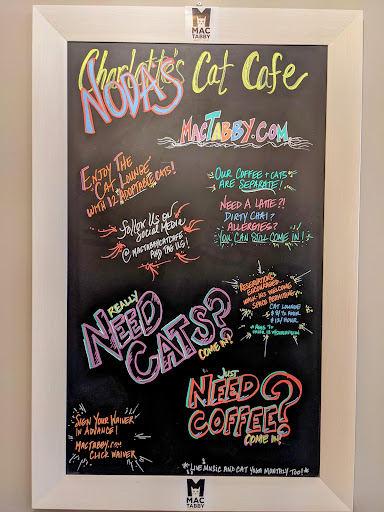 MAC
TABBY
Charlotte's Cat Cafe
NODA'S
MACTABBY.COM
ENJOY THE
CAT LOUNGE
WITH 12 ADOPTABLE CATS!
OUR COFFEE + CATS
ARE SEPARATE!
NEED A LATTE?!
DIRTY CHAI?
ALLERGIES?
YOU CAN STILL COME IN!
follow us on
SOCIAL MEDIA
@MACTABBYCATCAFE
AND TAG US!
RESERVATIONS
ENCOURAGED
WALK-INS WELCOME
SPACE PERMITTING
CAT LOUNGE
$12/HOUR
REALLY
NEED
CATS?
COME IN!
JUST
NEED
COFFEE?
COME IN!
SIGN YOUR WAIVER
IN ADVANCE!
MACTABBY.COM
CLICK WAIVER
*LIVE MUSIC AND CAT YOGA MONTHLY TOO!*
MAC
TABBY